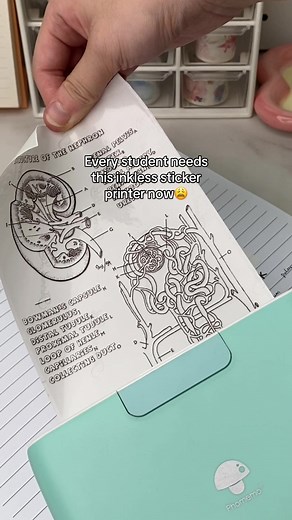 OF THE NEPHRON
RENAL PELVIS,
Every student needs
this inkless sticker
printer now😩
BOWMAN'S CAPSULE,
GLOMERULUS,
DISTAL TUBULE,
PROXIMAL TUBULE,
LOOP OF HENLE,
CAPILLARIES,
COLLECTING DUCT.
Phomemo